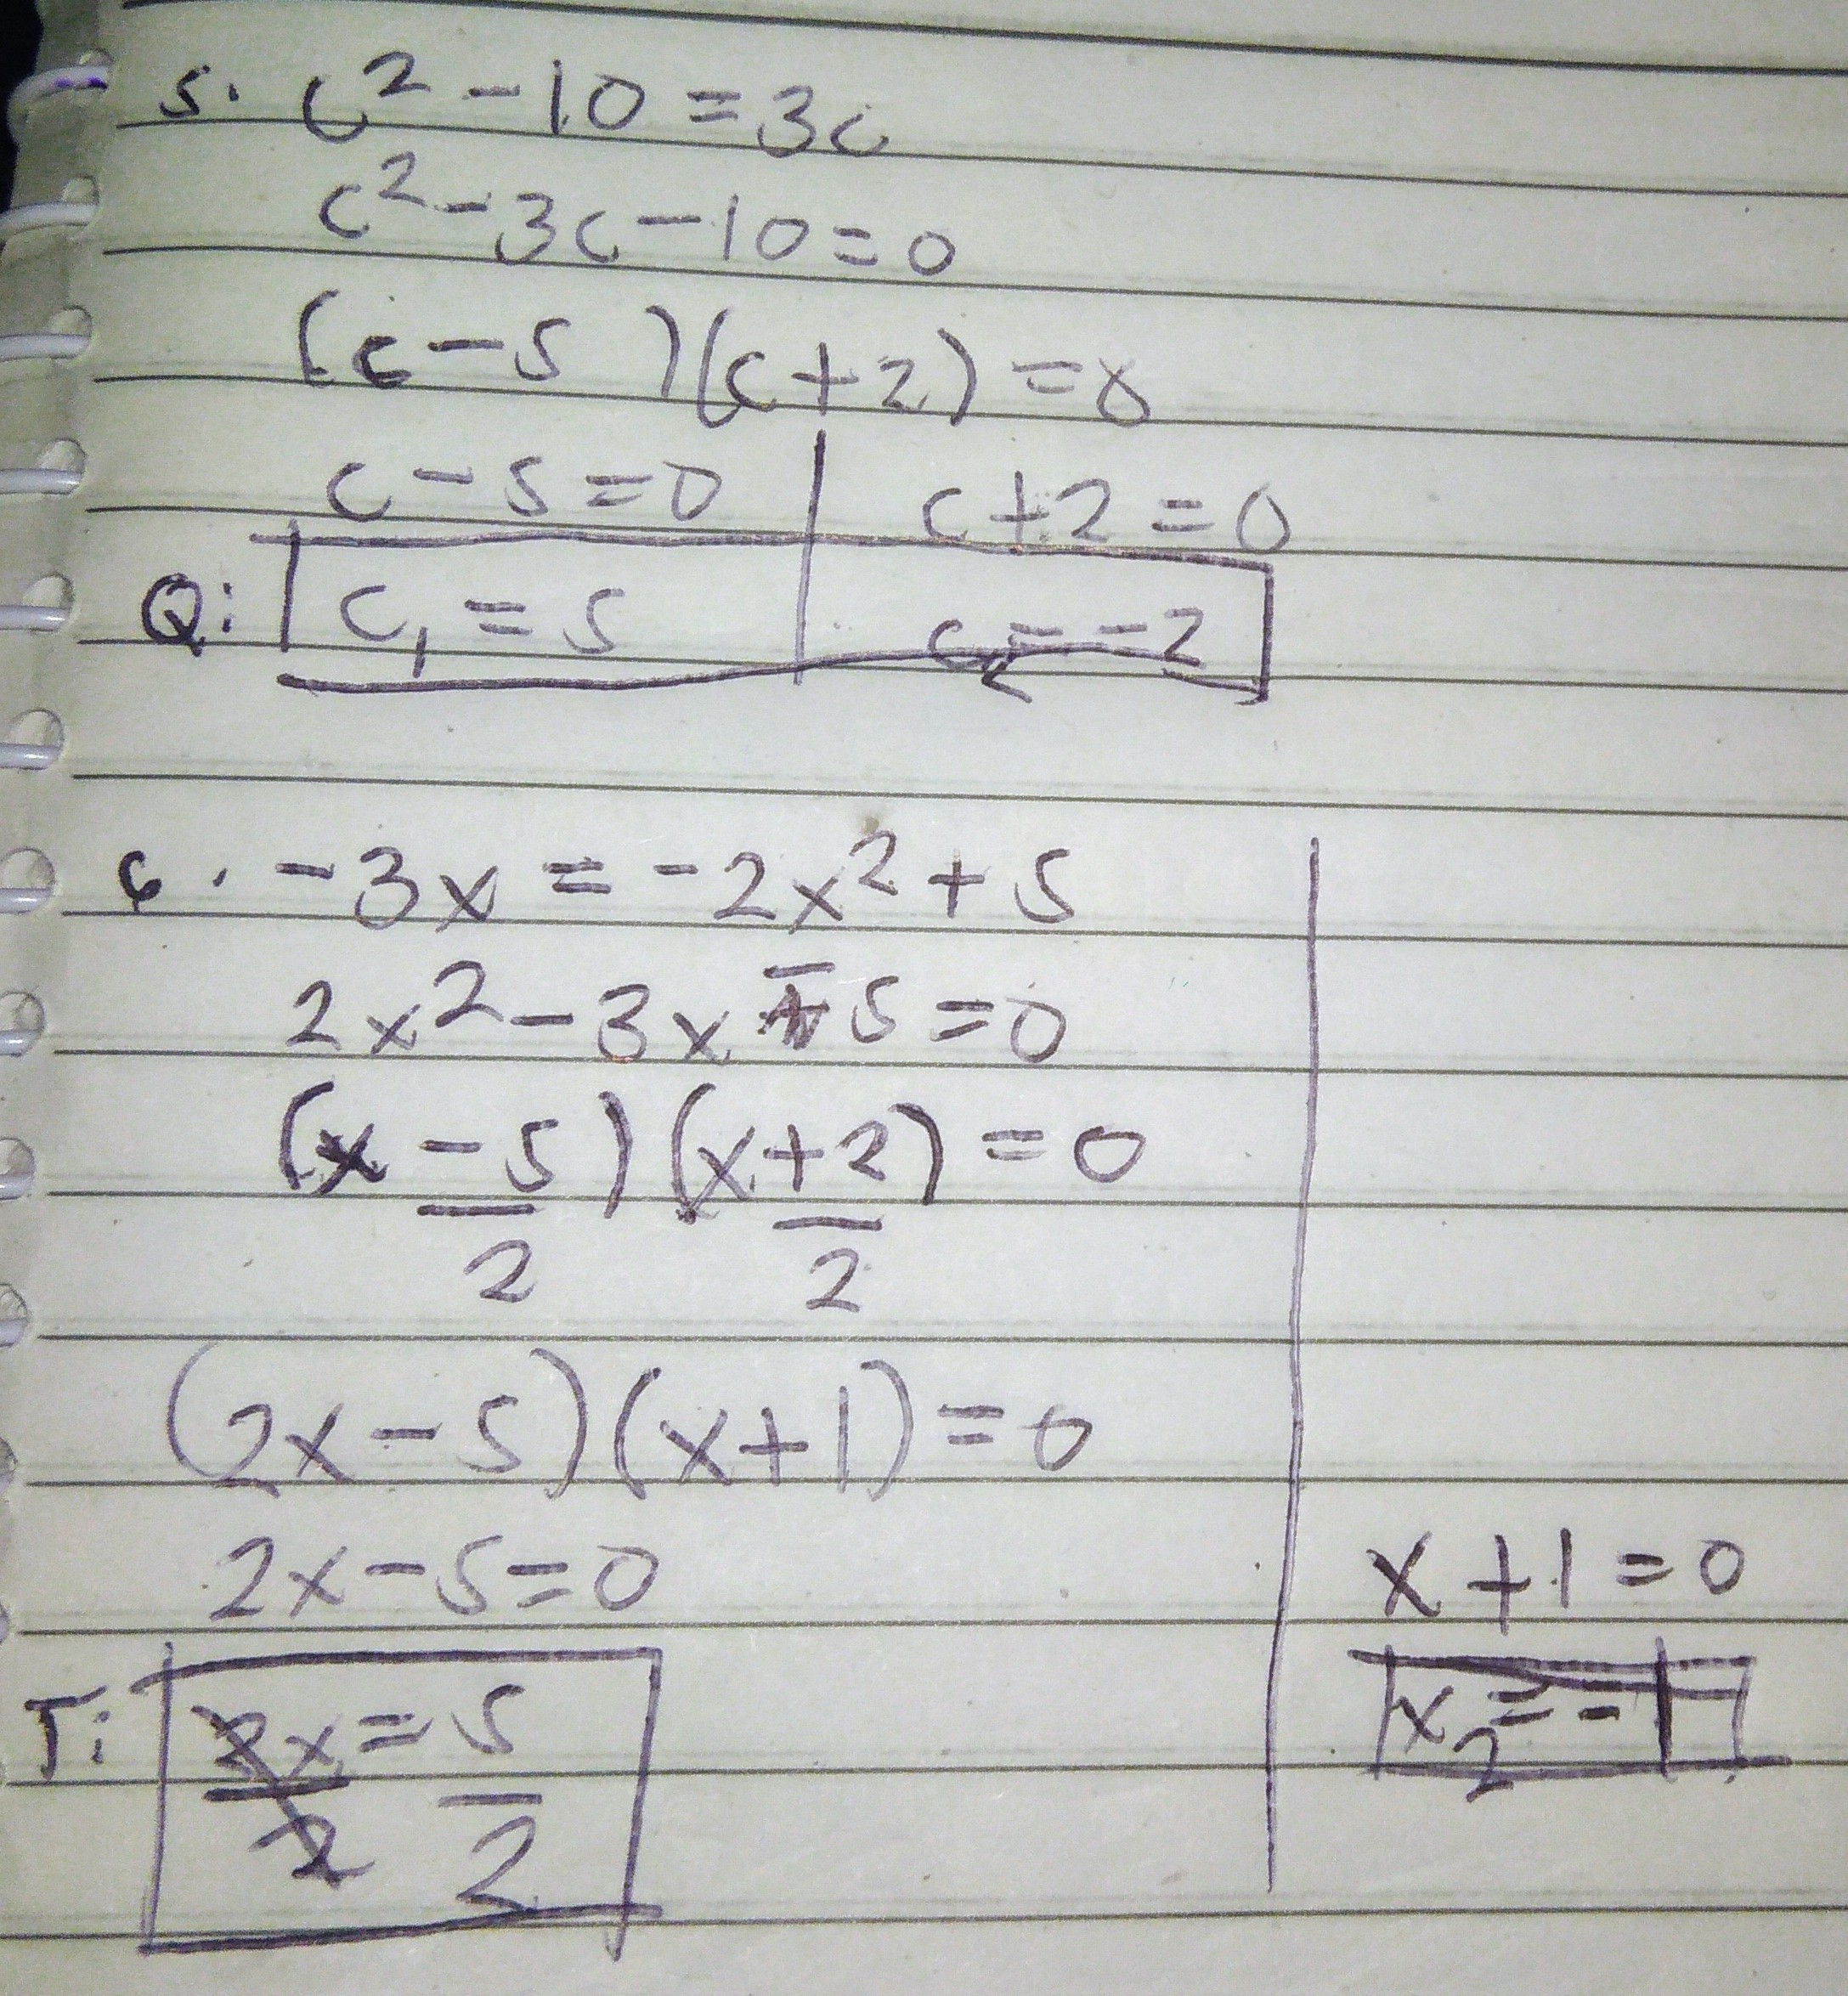 5. c² - 10 = 3c
c² - 3c - 10 = 0
(c - 5)(c + 2) = 0
c - 5 = 0 | c + 2 = 0
Q: c₁ = 5 | c₂ = -2
6. -3x = -2x² + 5
2x² - 3x - 5 = 0
(x - 5)(x + 2) = 0
2 2
(2x - 5)(x + 1) = 0
2x - 5 = 0 | x + 1 = 0
T: 2x = 5 | x₂ = -1
2 2